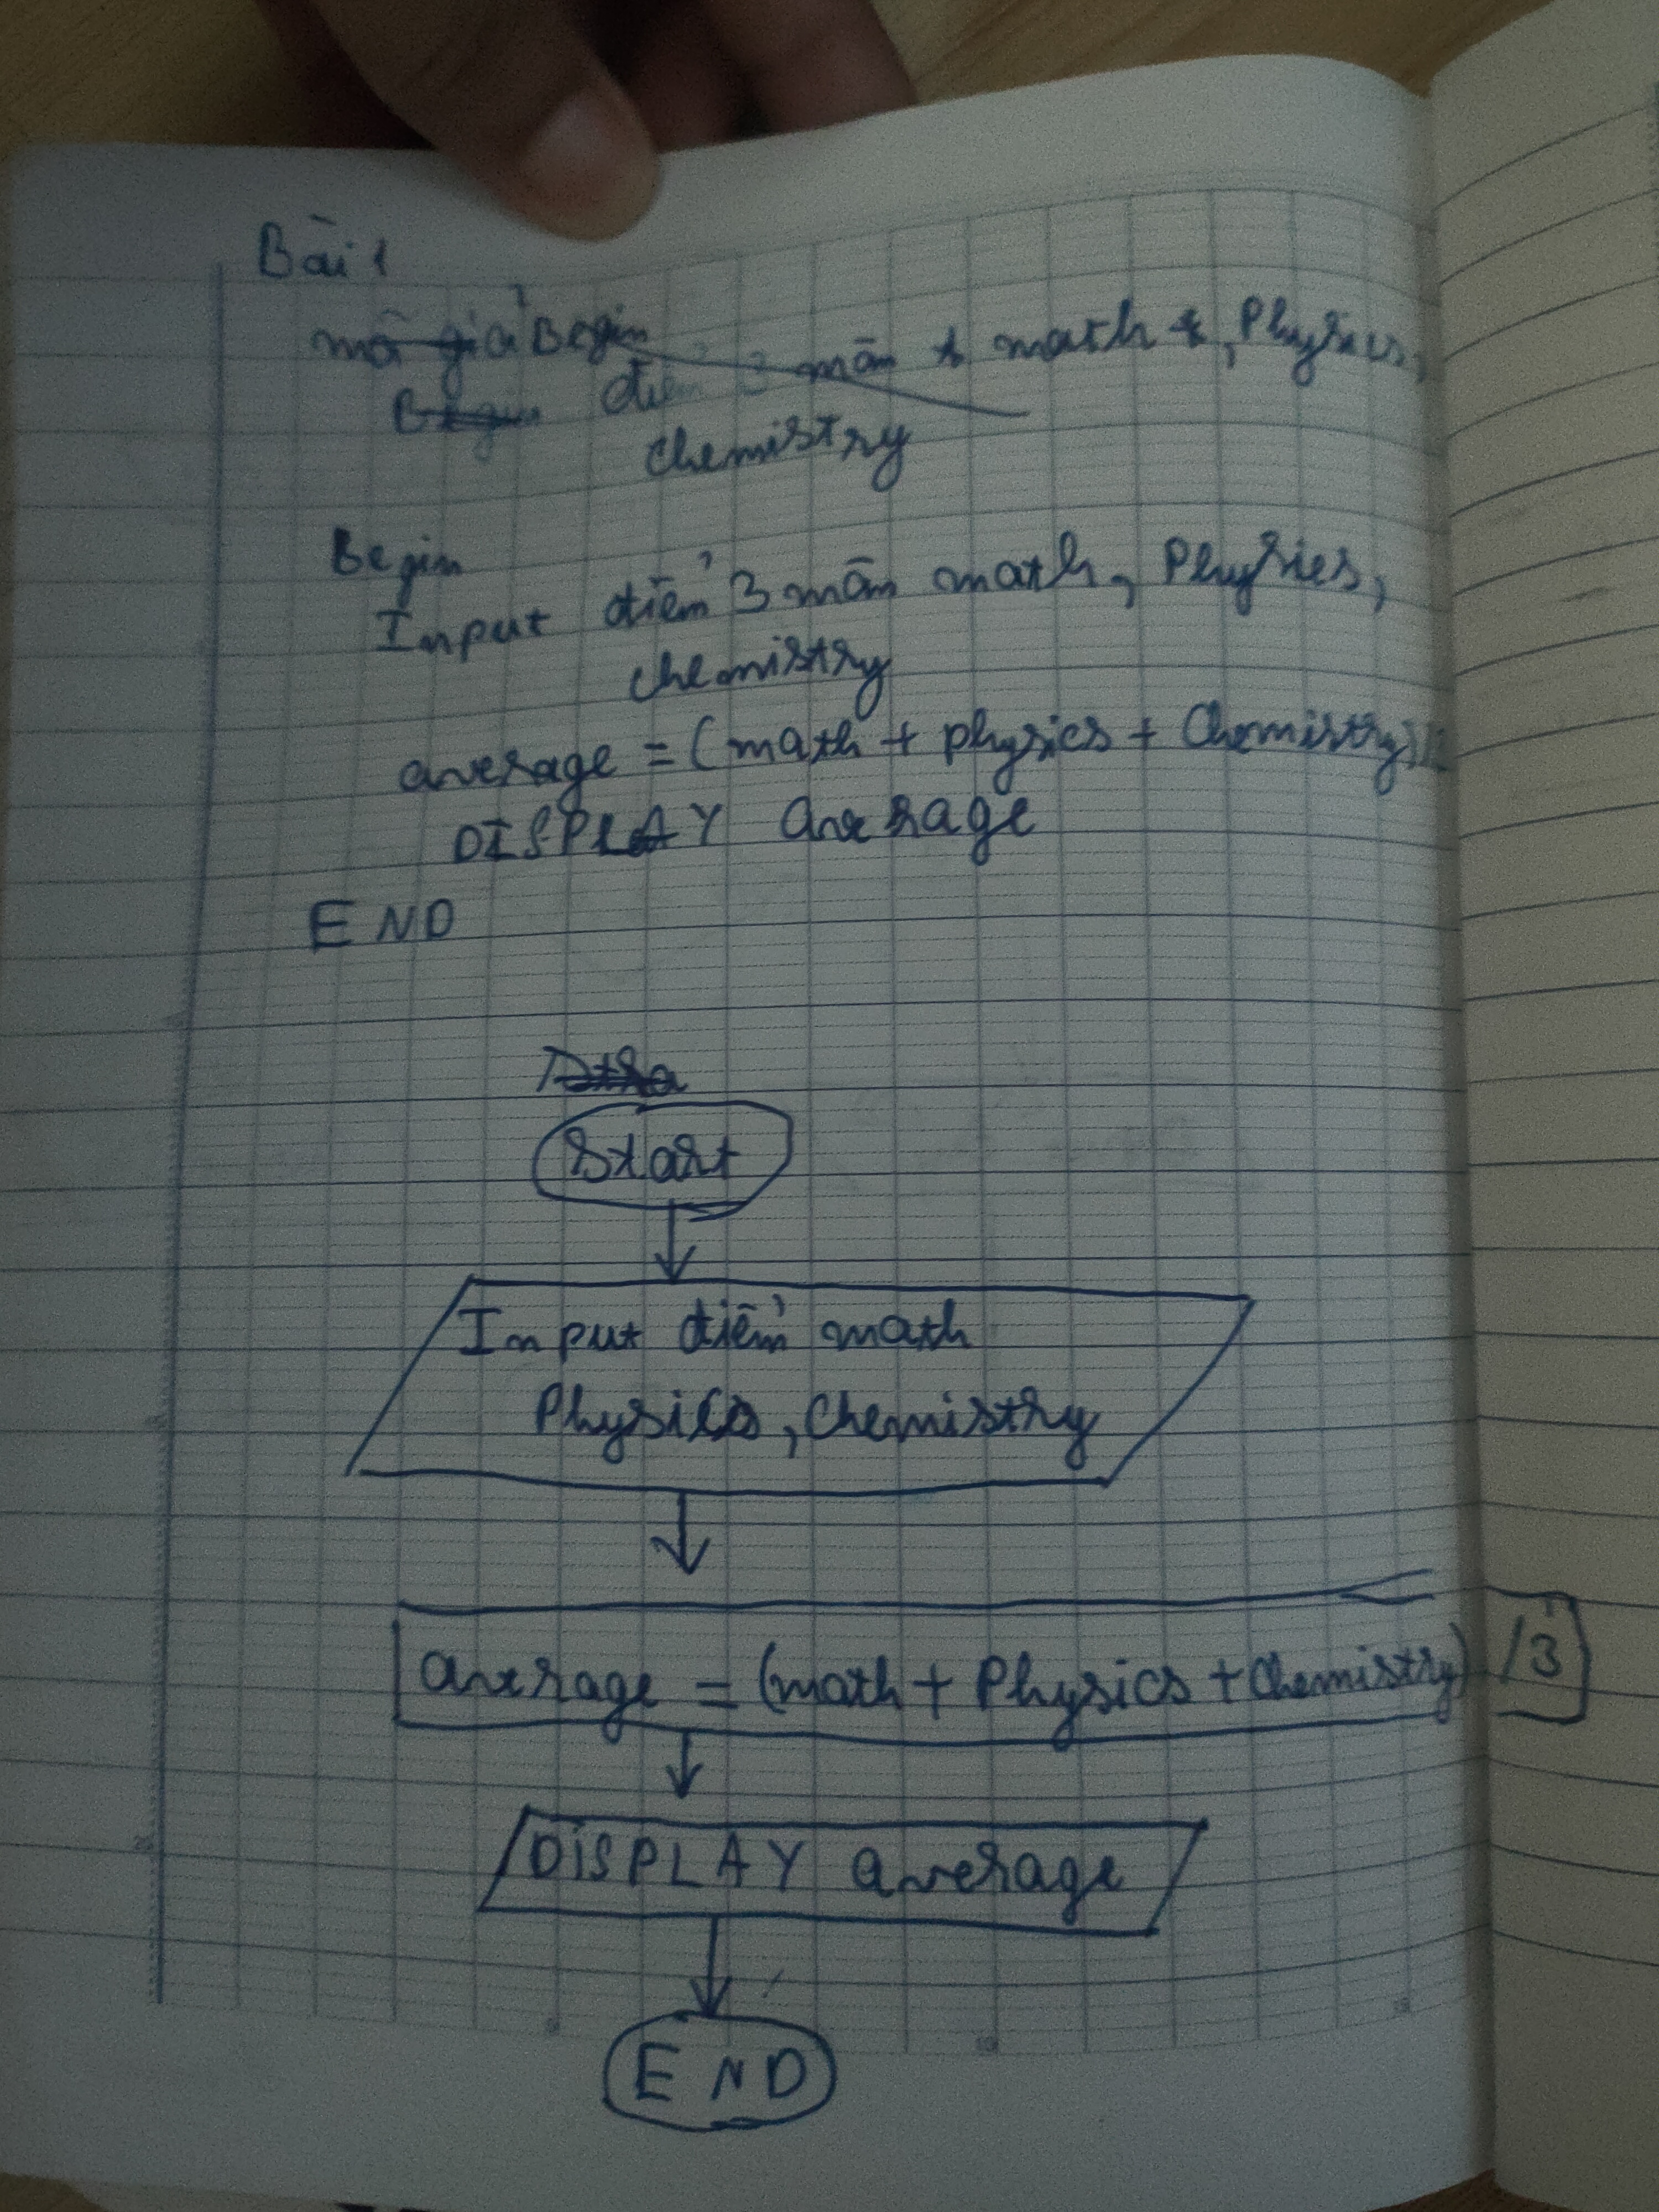 Bài 1
mã giả Begin
Begin điểm 3 môn math, Physics,
chemistry
Begin
Input điểm 3 môn math, Physics,
chemistry
average = (math + physics + Chemistry)/
DISPLAY average
END
Start
Input điểm math
Physics, Chemistry
average = (math + Physics + Chemistry) /3
DISPLAY average
END